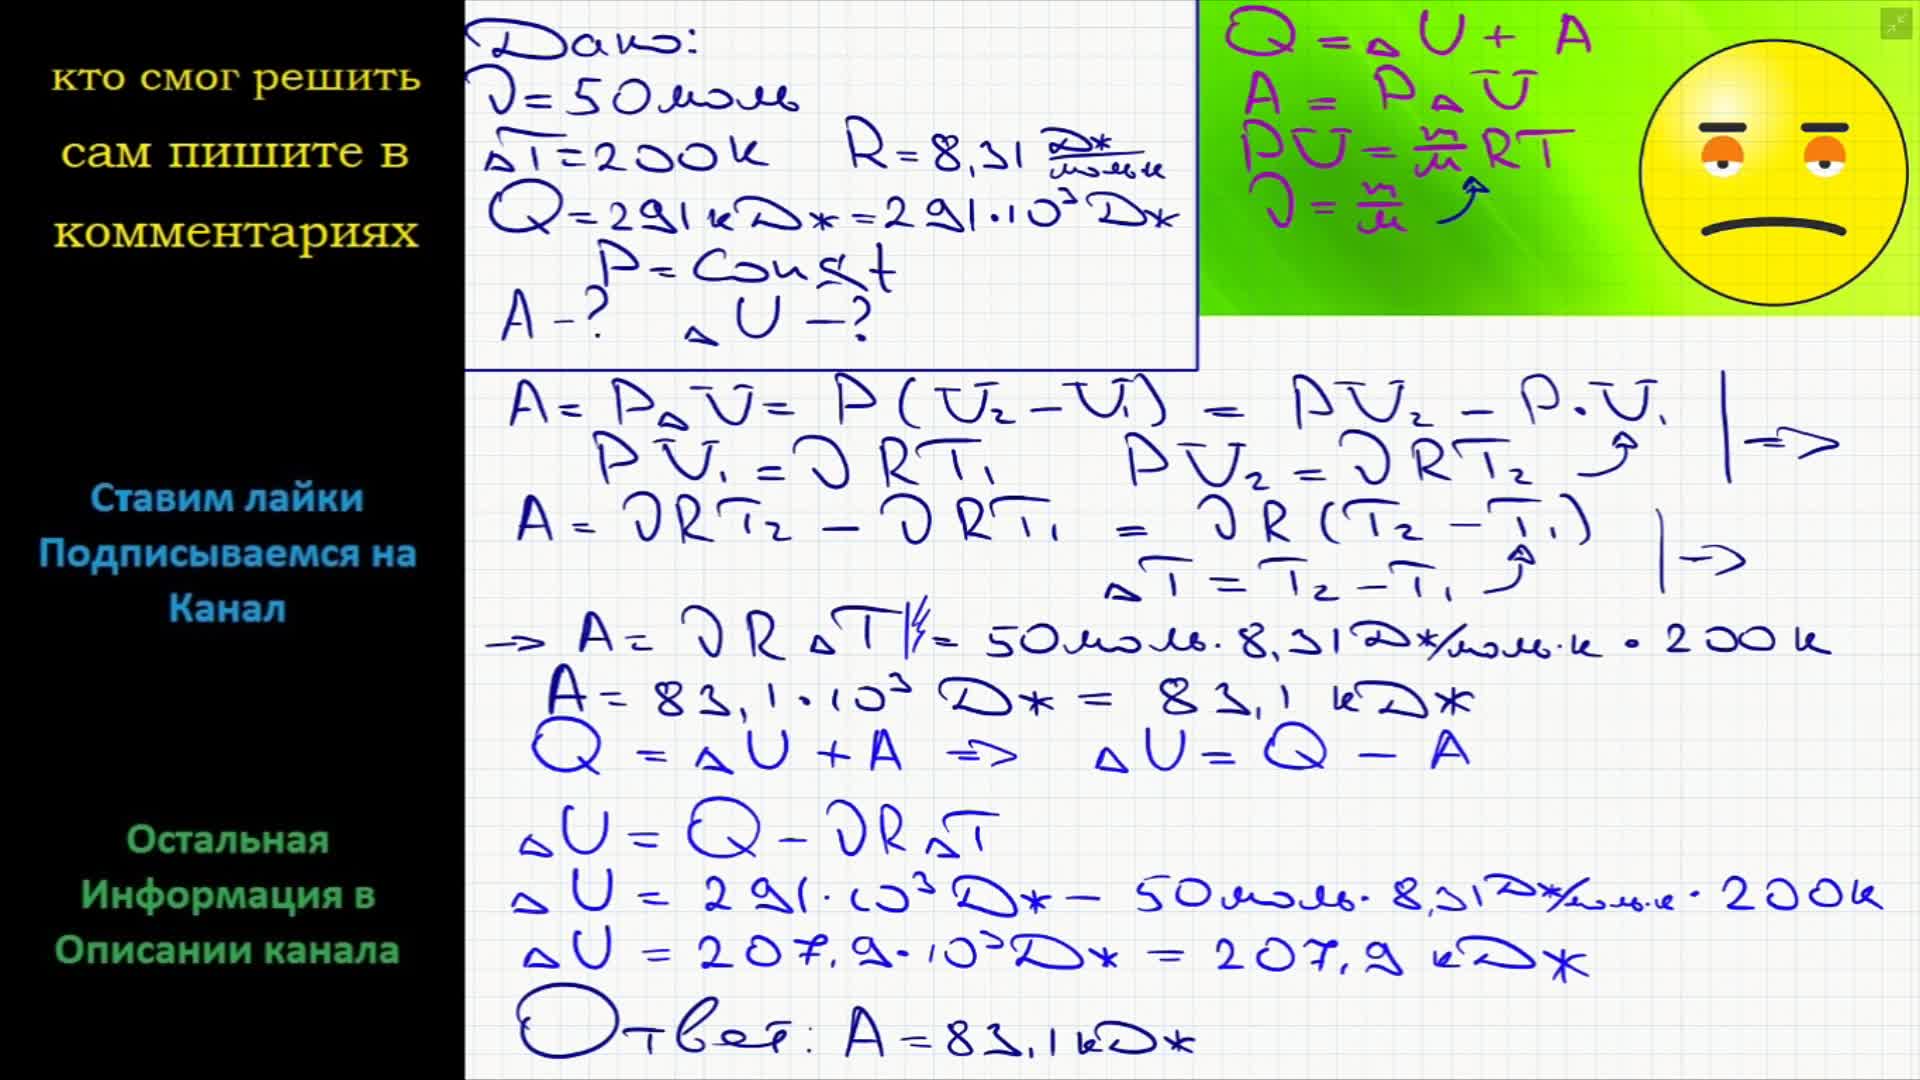 кто смог решить
сам пишите в
комментариях
Ставим лайки
Подписываемся на
Канал
Остальная
Информация в
Описании канала
Дано:
ν = 50 моль
ΔT = 200 К R = 8,31 Дж/моль·К
Q = 291 кДж = 291·10³ Дж
P = const
A - ? ΔU - ?
Q = ΔU + A
A = PΔV
PV = m/μ RT
ν = m/μ
A = PΔV = P(V₂ - V₁) = PV₂ - P·V₁ | =>
PV₁ = νRT₁ PV₂ = νRT₂
A = νRT₂ - νRT₁ = νR(T₂ - T₁) | ->
ΔT = T₂ - T₁
-> A = νRΔT = 50 моль · 8,31 Дж/моль·К · 200 К
A = 83,1·10³ Дж = 83,1 кДж
Q = ΔU + A => ΔU = Q - A
ΔU = Q - νRΔT
ΔU = 291·10³ Дж - 50 моль · 8,31 Дж/моль·К · 200 К
ΔU = 207,9·10³ Дж = 207,9 кДж
Ответ: A = 83,1 кДж